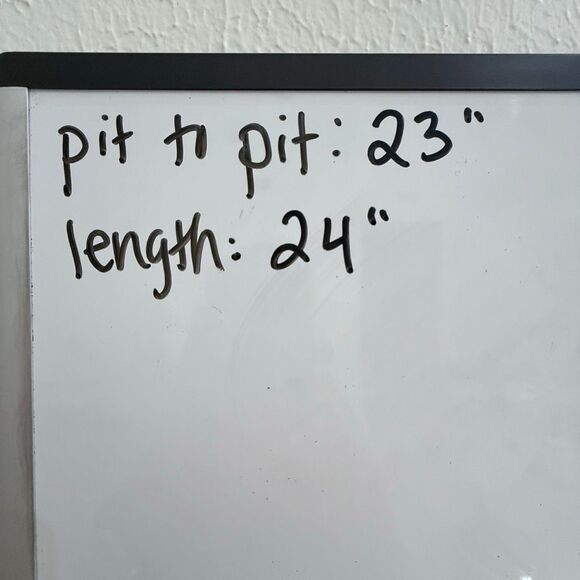 pit to pit: 23"
length: 24"